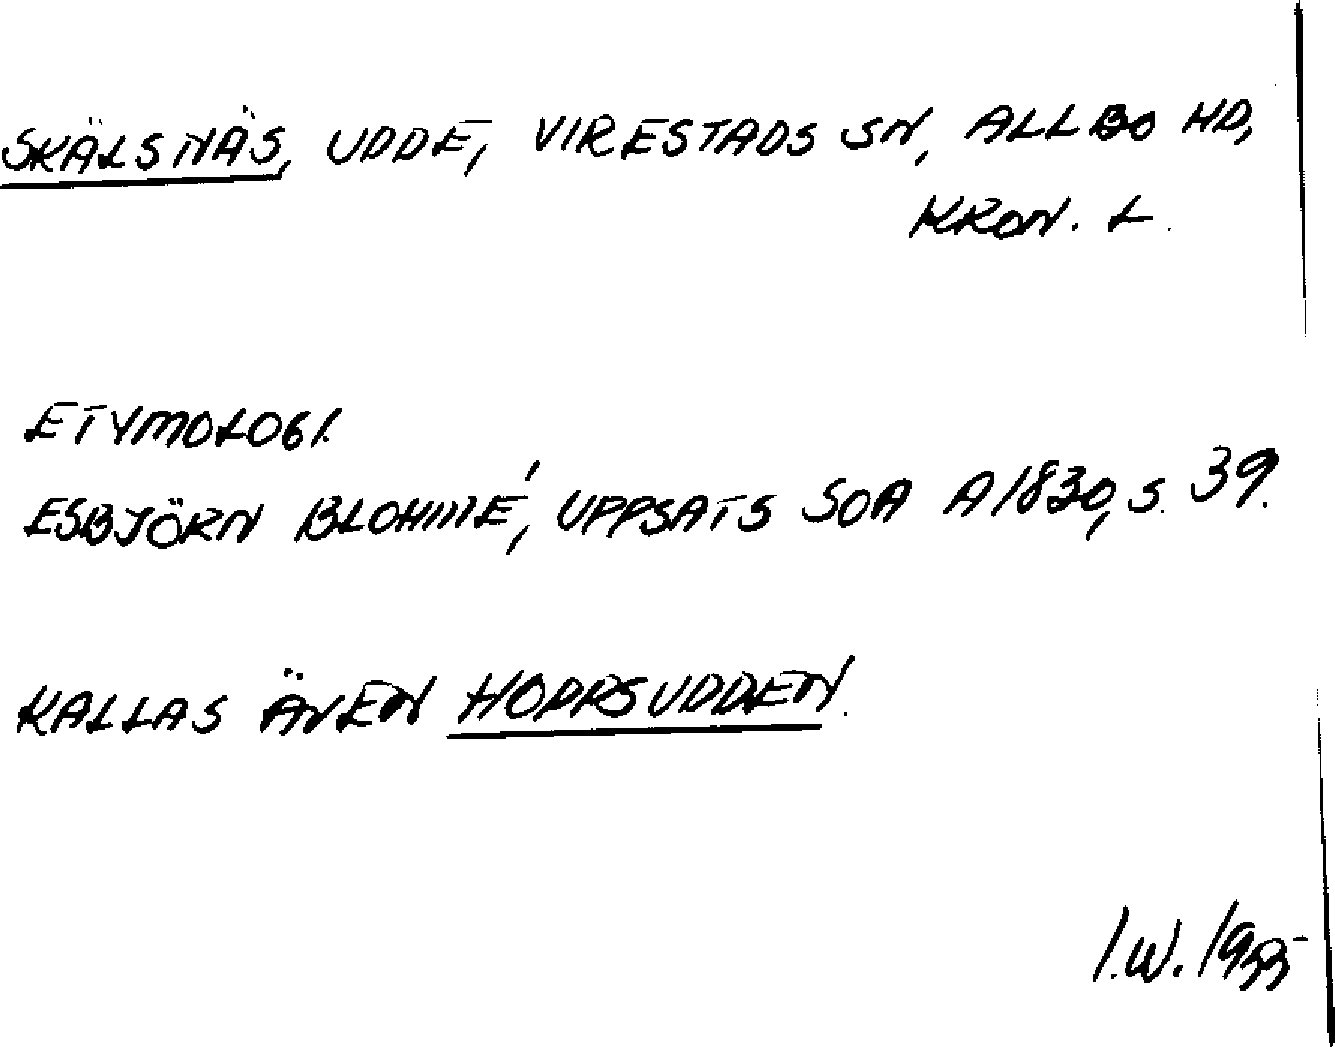 SKÄLSNÄS, UDDE, VIRESTADS SN, ALLBO HD,
KRON. L.
ETYMOLOGI.
ESBJÖRN BLOHMÉ, UPPSATS SOA A1830, S. 39.
KALLAS ÄVEN HOPPSUDDEN.
I.W.